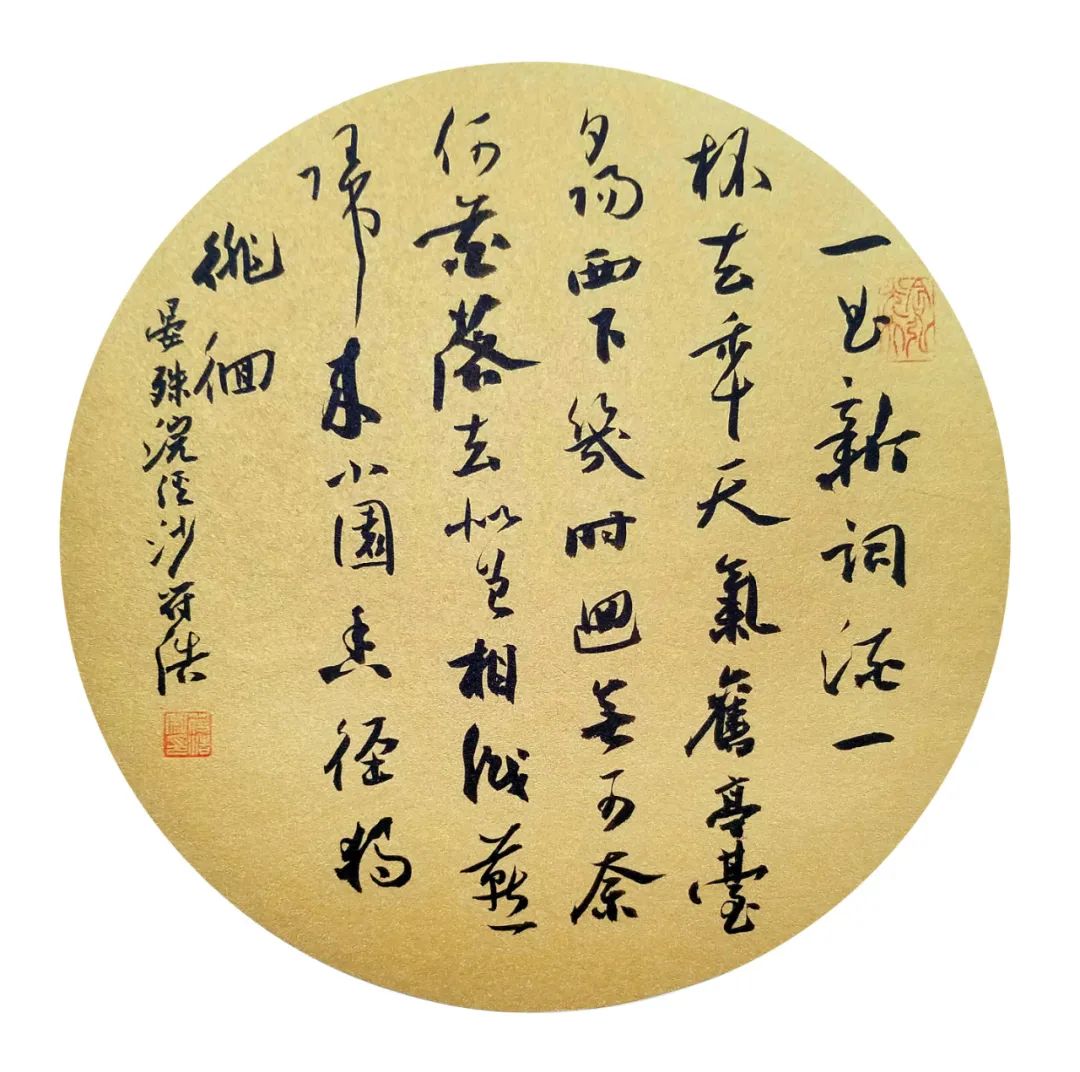 一曲新詞酒一
杯去年天氣舊亭臺
夕陽西下幾时迴無可奈
何花落去似曾相識燕
歸來小園香徑獨
徘徊
晏殊浣溪沙符浩